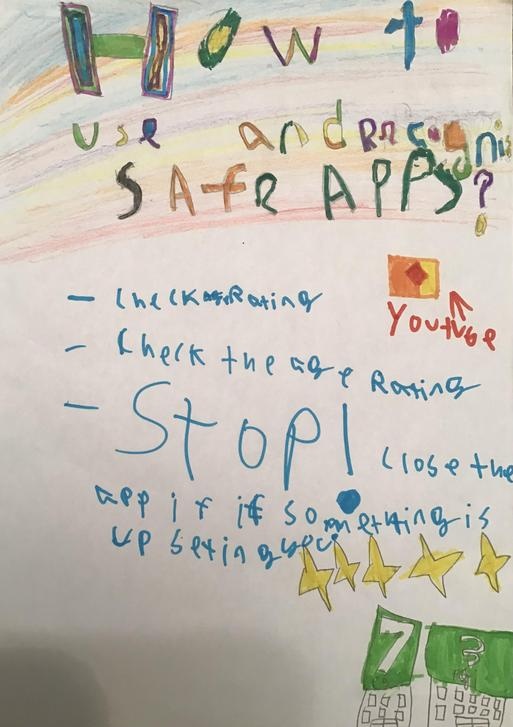 How to
use and Recogni
SAfe APPS?
- Check Rating
Youtube
- Check the age Rating
- STOP! Close the
app if if something is
upseting you
7 3